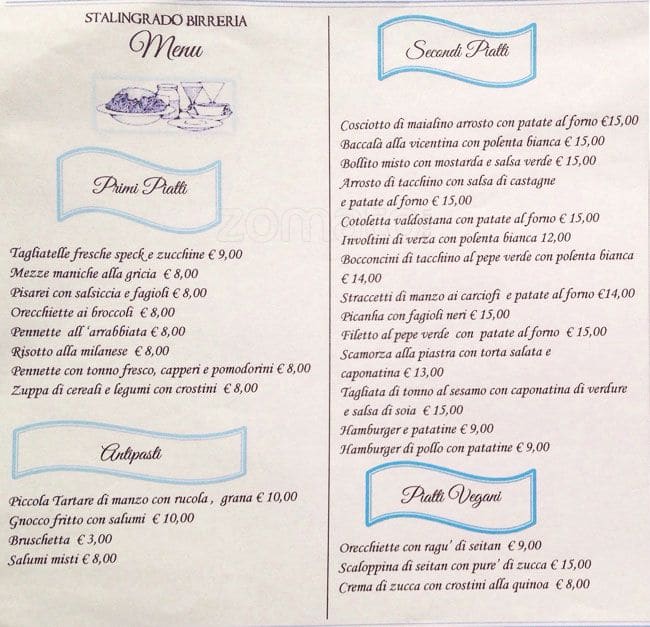 STALINGRADO BIRRERIA
Menu
Primi Piatti
Tagliatelle fresche speck e zucchine € 9,00
Mezze maniche alla gricia € 8,00
Pisarei con salsiccia e fagioli € 8,00
Orecchiette ai broccoli € 8,00
Pennette all 'arrabbiata € 8,00
Risotto alla milanese € 8,00
Pennette con tonno fresco, capperi e pomodorini € 8,00
Zuppa di cereali e legumi con crostini € 8,00
Antipasti
Piccola Tartare di manzo con rucola , grana € 10,00
Gnocco fritto con salumi € 10,00
Bruschetta € 3,00
Salumi misti € 8,00
Secondi Piatti
Cosciotto di maialino arrosto con patate al forno €15,00
Baccalà alla vicentina con polenta bianca € 15,00
Bollito misto con mostarda e salsa verde € 15,00
Arrosto di tacchino con salsa di castagne
e patate al forno € 15,00
Cotoletta valdostana con patate al forno € 15,00
Involtini di verza con polenta bianca 12,00
Bocconcini di tacchino al pepe verde con polenta bianca
€ 14,00
Straccetti di manzo ai carciofi e patate al forno €14,00
Picanha con fagioli neri € 15,00
Filetto al pepe verde con patate al forno € 15,00
Scamorza alla piastra con torta salata e
caponatina € 13,00
Tagliata di tonno al sesamo con caponatina di verdure
e salsa di soia € 15,00
Hamburger e patatine € 9,00
Hamburger di pollo con patatine € 9,00
Piatti Vegani
Orecchiette con ragu' di seitan € 9,00
Scaloppina di seitan con pure' di zucca € 15,00
Crema di zucca con crostini alla quinoa € 8,00